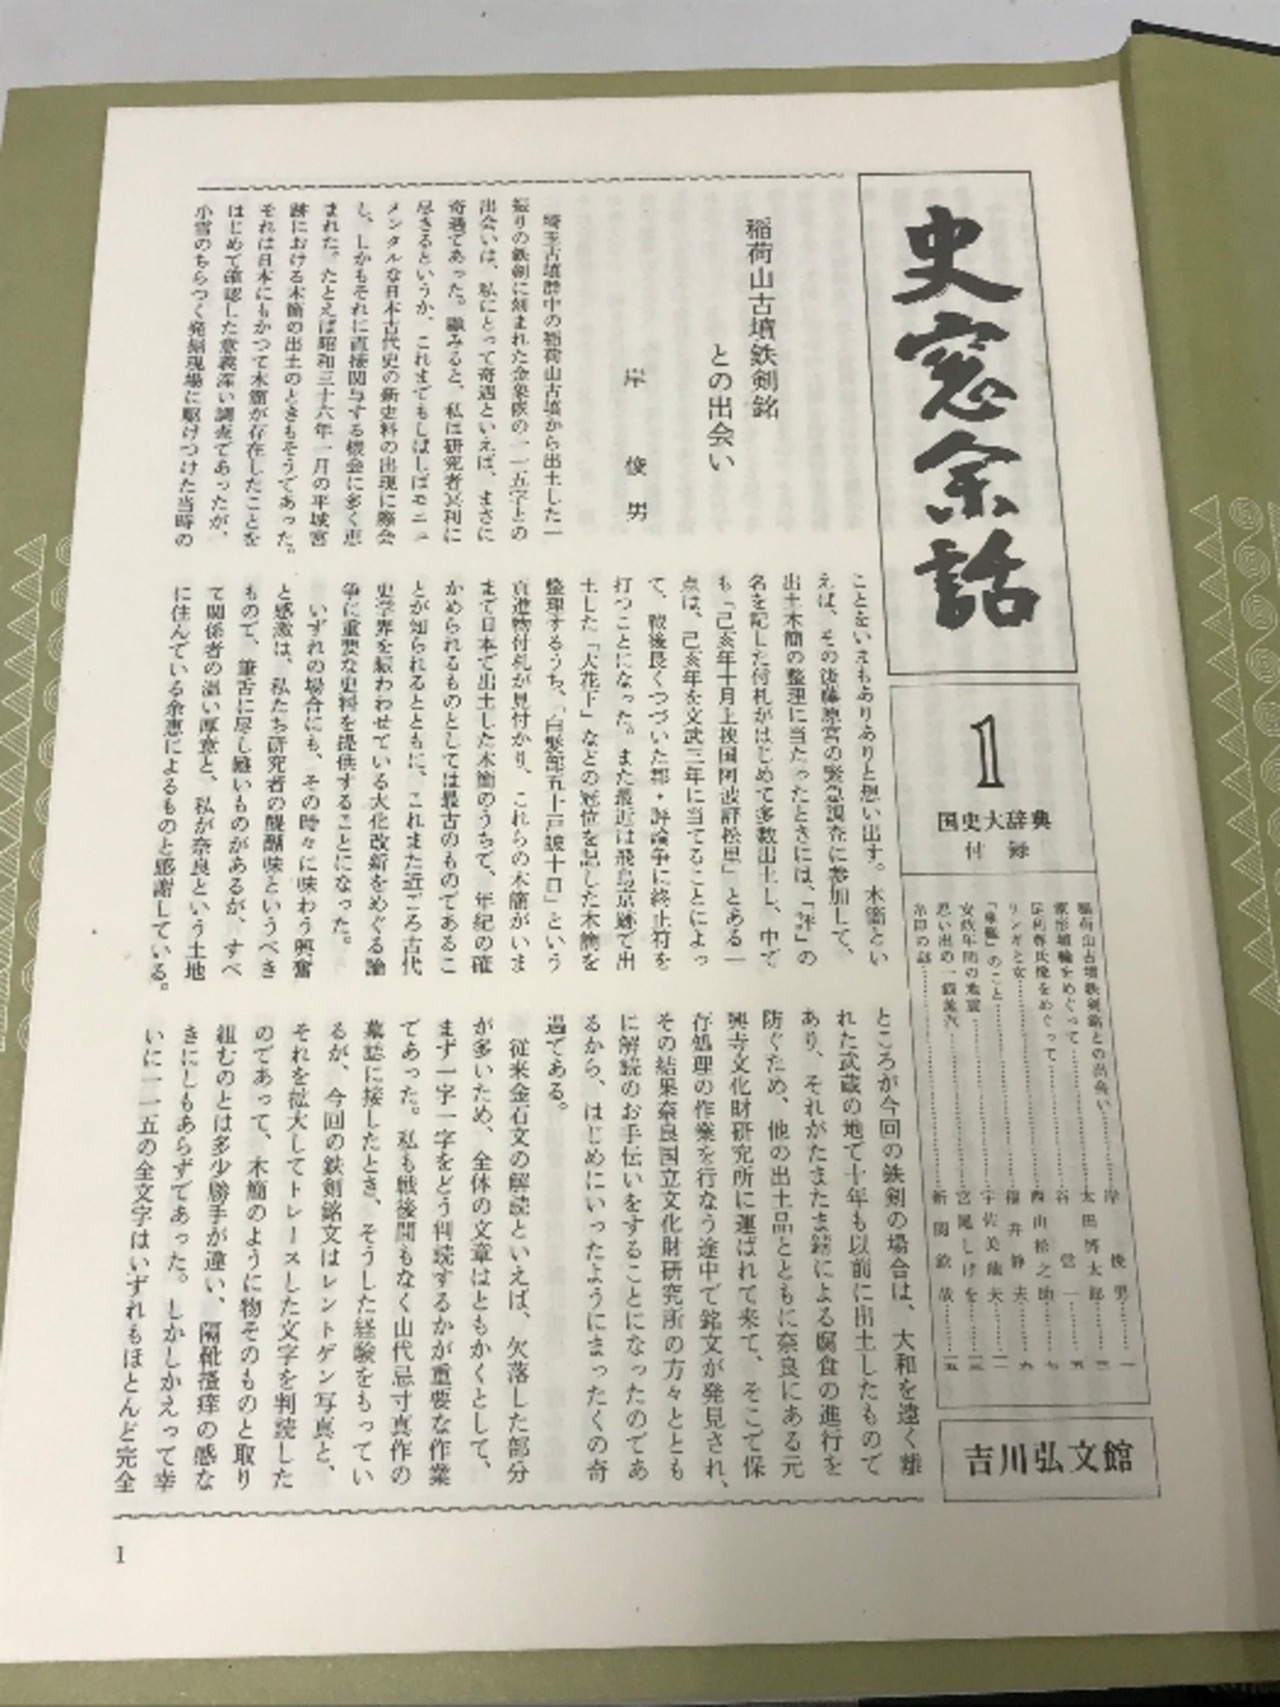 史窓余話
1
国史大辞典
付録
稲荷山古墳鉄剣銘との出会い……岸俊男……一
家形埴輪をめぐって……太田博太郎……三
足利尊氏像をめぐって……谷信一……五
リンギと女……西山松之助……七
「車駕」のこと……福井静夫……九
安政年間の地震……宇佐美龍夫……一一
思い出の一齣……宮尾しげを……一三
糸印の話……新関欽哉……一五
吉川弘文館
稲荷山古墳鉄剣銘
との出会い
岸俊男
埼玉古墳群中の稲荷山古墳から出土した一
振りの鉄剣に刻まれた金象嵌の一一五字との
出会いは、私にとって奇遇といえば、まさに
奇遇であった。顧みると、私は研究者冥利に
尽きるというか、これまでもしばしばモニュ
メンタルな日本古代史の新史料の出現に際会
し、しかもそれに直接関与する機会に多く恵
まれた。たとえば昭和三十六年一月の平城宮
跡における木簡の出土のときもそうであった。
それは日本にもかつて木簡が存在したことを
はじめて確認した意義深い調査であったが、
小雪のちらつく発掘現場に駆けつけた当時の
ことをいまもありありと想い出す。木簡とい
えば、その後藤原宮の緊急調査に参加して、
出土木簡の整理に当たったときには、「評」の
名を記した付札がはじめて多数出土し、中で
も「己亥年十月上挟国阿波評松里」とある一
点は、己亥年を文武三年に当てることによっ
て、戦後長くつづいた郡・評論争に終止符を
打つことになった。また最近は飛鳥京跡で出
土した「大花下」などの冠位を記した木簡を
整理するうち、「白髪部五十戸䟽十口」という
貢進物付札が見付かり、これらの木簡がいま
まで日本で出土した木簡のうちで、年紀の確
かめられるものとしては最古のものであるこ
とが知られるとともに、これまた近ごろ古代
史学界を賑わわせている大化改新をめぐる論
争に重要な史料を提供することになった。
いずれの場合にも、その時々に味わう興奮
と感激は、私たち研究者の醍醐味というべき
もので、筆舌に尽し難いものがあるが、すべ
て関係者の温い厚意と、私が奈良という土地
に住んでいる余恵によるものと感謝している。
ところが今回の鉄剣の場合は、大和を遠く離
れた武蔵の地で十年も以前に出土したもので
あり、それがたまたま錆による腐食の進行を
防ぐため、他の出土品とともに奈良にある元
興寺文化財研究所に運ばれて来て、そこで保
存処理の作業を行なう途中で銘文が発見され、
その結果奈良国立文化財研究所の方々ととも
に解読のお手伝いをすることになったのであ
るから、はじめにいったようにまったくの奇
遇である。
従来金石文の解読といえば、欠落した部分
が多いため、全体の文章はともかくとして、
まず一字一字をどう判読するかが重要な作業
であった。私も戦後間もなく山代忌寸真作の
墓誌に接したとき、そうした経験をもってい
るが、今回の鉄剣銘文はレントゲン写真と、
それを拡大してトレースした文字を判読した
のであって、木簡のように物そのものと取り
組むのとは多少勝手が違い、隔靴掻痒の感な
きにしもあらずであった。しかしかえって幸
いに一一五の全文字はいずれもほとんど完全
1